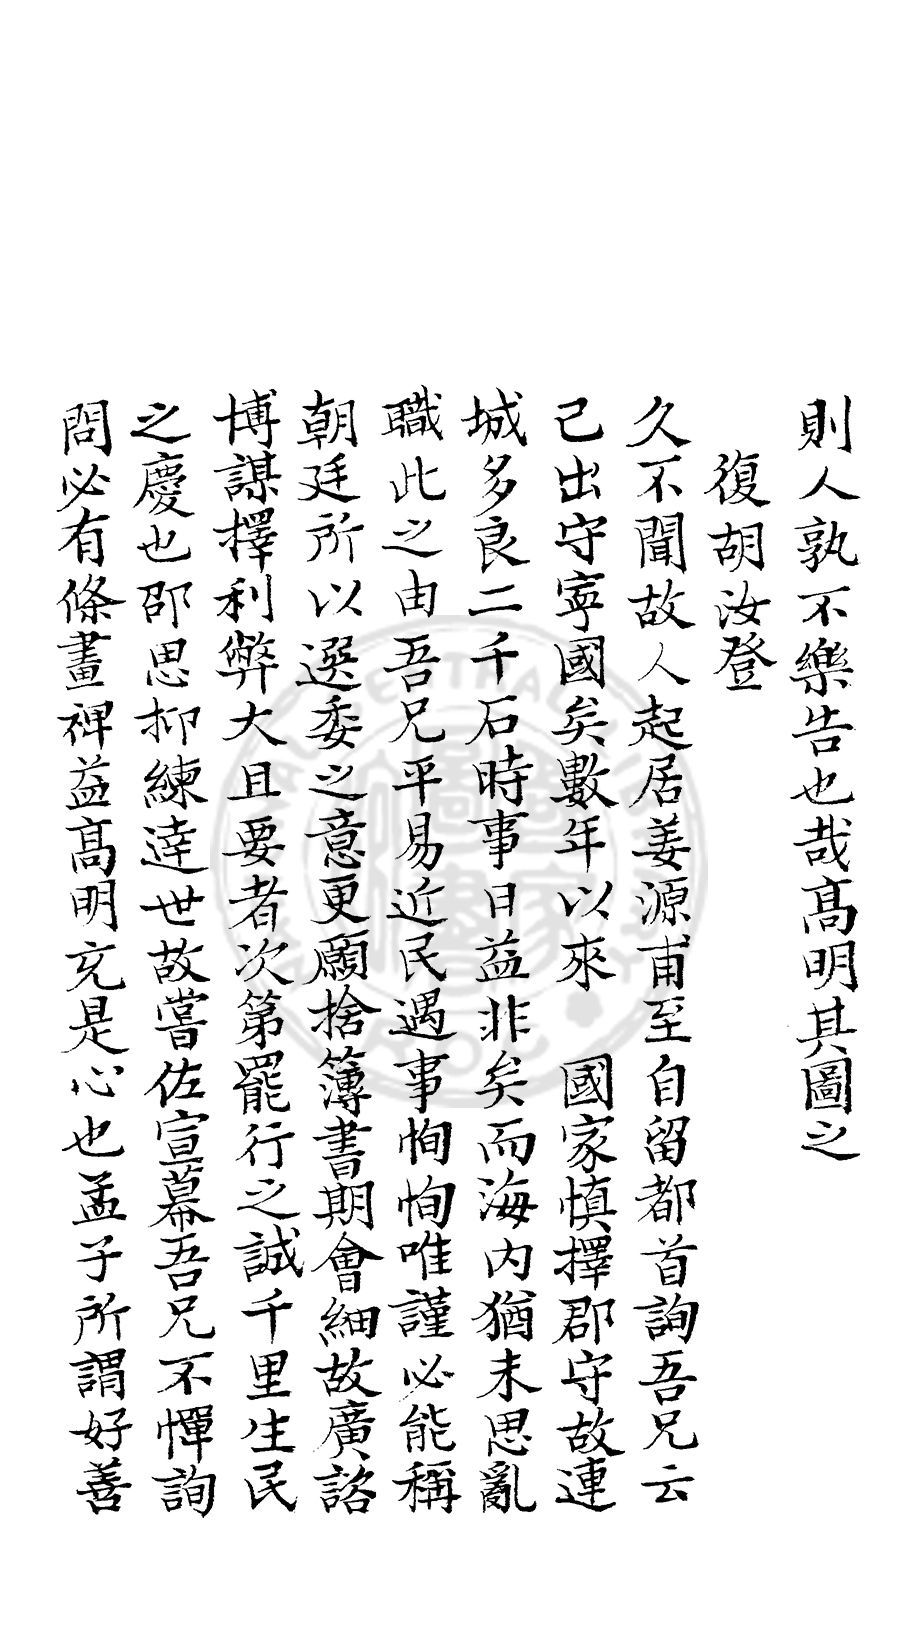 則人孰不樂告也哉高明其圖之
復胡汝登
久不聞故人起居姜源甫至自留都首詢吾兄云
己出守寧國矣數年以來　國家慎擇郡守故連
城多良二千石時事日益非矣而海內猶未思亂
職此之由吾兄平易近民遇事恂恂唯謹必能稱
朝廷所以選委之意更願捨簿書期會細故廣諮
博謀擇利弊大且要者次第罷行之誠千里生民
之慶也邵思抑練達世故嘗佐宣幕吾兄不憚詢
問必有條畫裨益高明充是心也孟子所謂好善